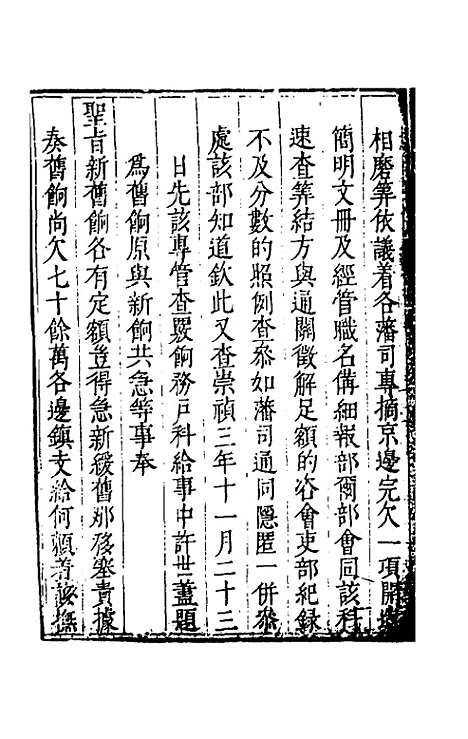 相磨筭依議着各藩司專摘京邊完欠一項開造
簡明文冊及經管職名備細報部爾部會同該科
速查筭結方與通關徵解足額的咨會吏部紀錄
不及分數的照例查叅如藩司通同隱匿一併叅
處該部知道欽此又查崇禎三年十一月二十三
日先該專管查覈餉務戶科給事中許世藎題
爲舊餉原與新餉共急等事奉
聖旨新舊餉各有定額豈得急新緩舊那移塞責據
奏舊餉尚欠七十餘萬各邊鎮支給何賴着該撫